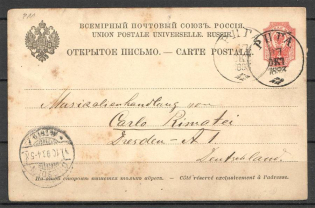 ВСЕМІРНЫЙ ПОЧТОВЫЙ СОЮЗЪ. РОССІЯ.
UNION POSTALE UNIVERSELLE. RUSSIE.
ОТКРЫТОЕ ПИСЬМО. — CARTE POSTALE.
РИГА
Musicalienhandlung von
Carlo Rimatei
Dresden-A. 1.
Deutschland.
На этой сторонѣ пишется только адресъ. — Côté réservé exclusivement à l'adresse.